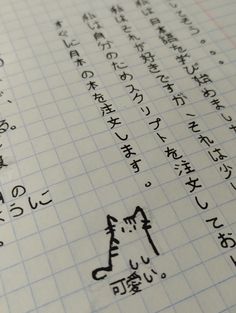 してそう。。。
私は日本語を学び始めまし
私はそれが好きですが、それは少し
私は自分のためスクリプトを注文してお
すぐに日本の本を注文します。
可愛い。